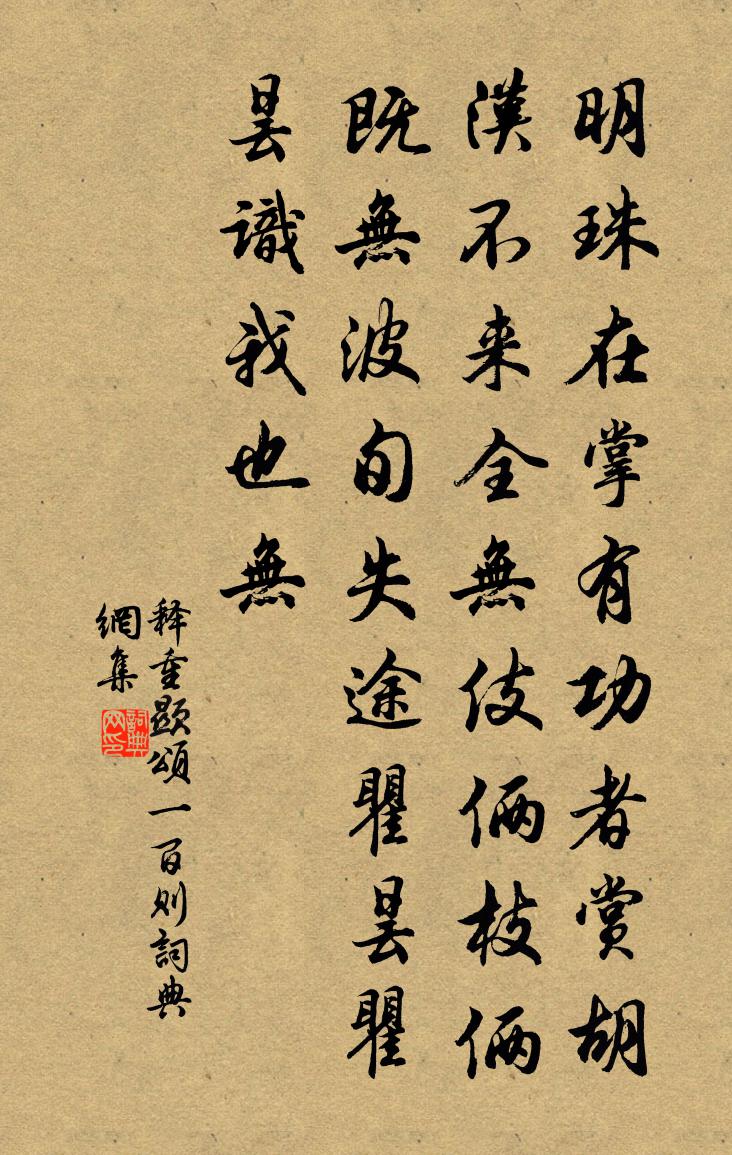 明珠在掌有功者賞胡
漢不来全無伎俩枝俩
既無波旬失途瞿昙瞿
昙識我也無
释重顯頌一百则詞典
網集
詞典网印